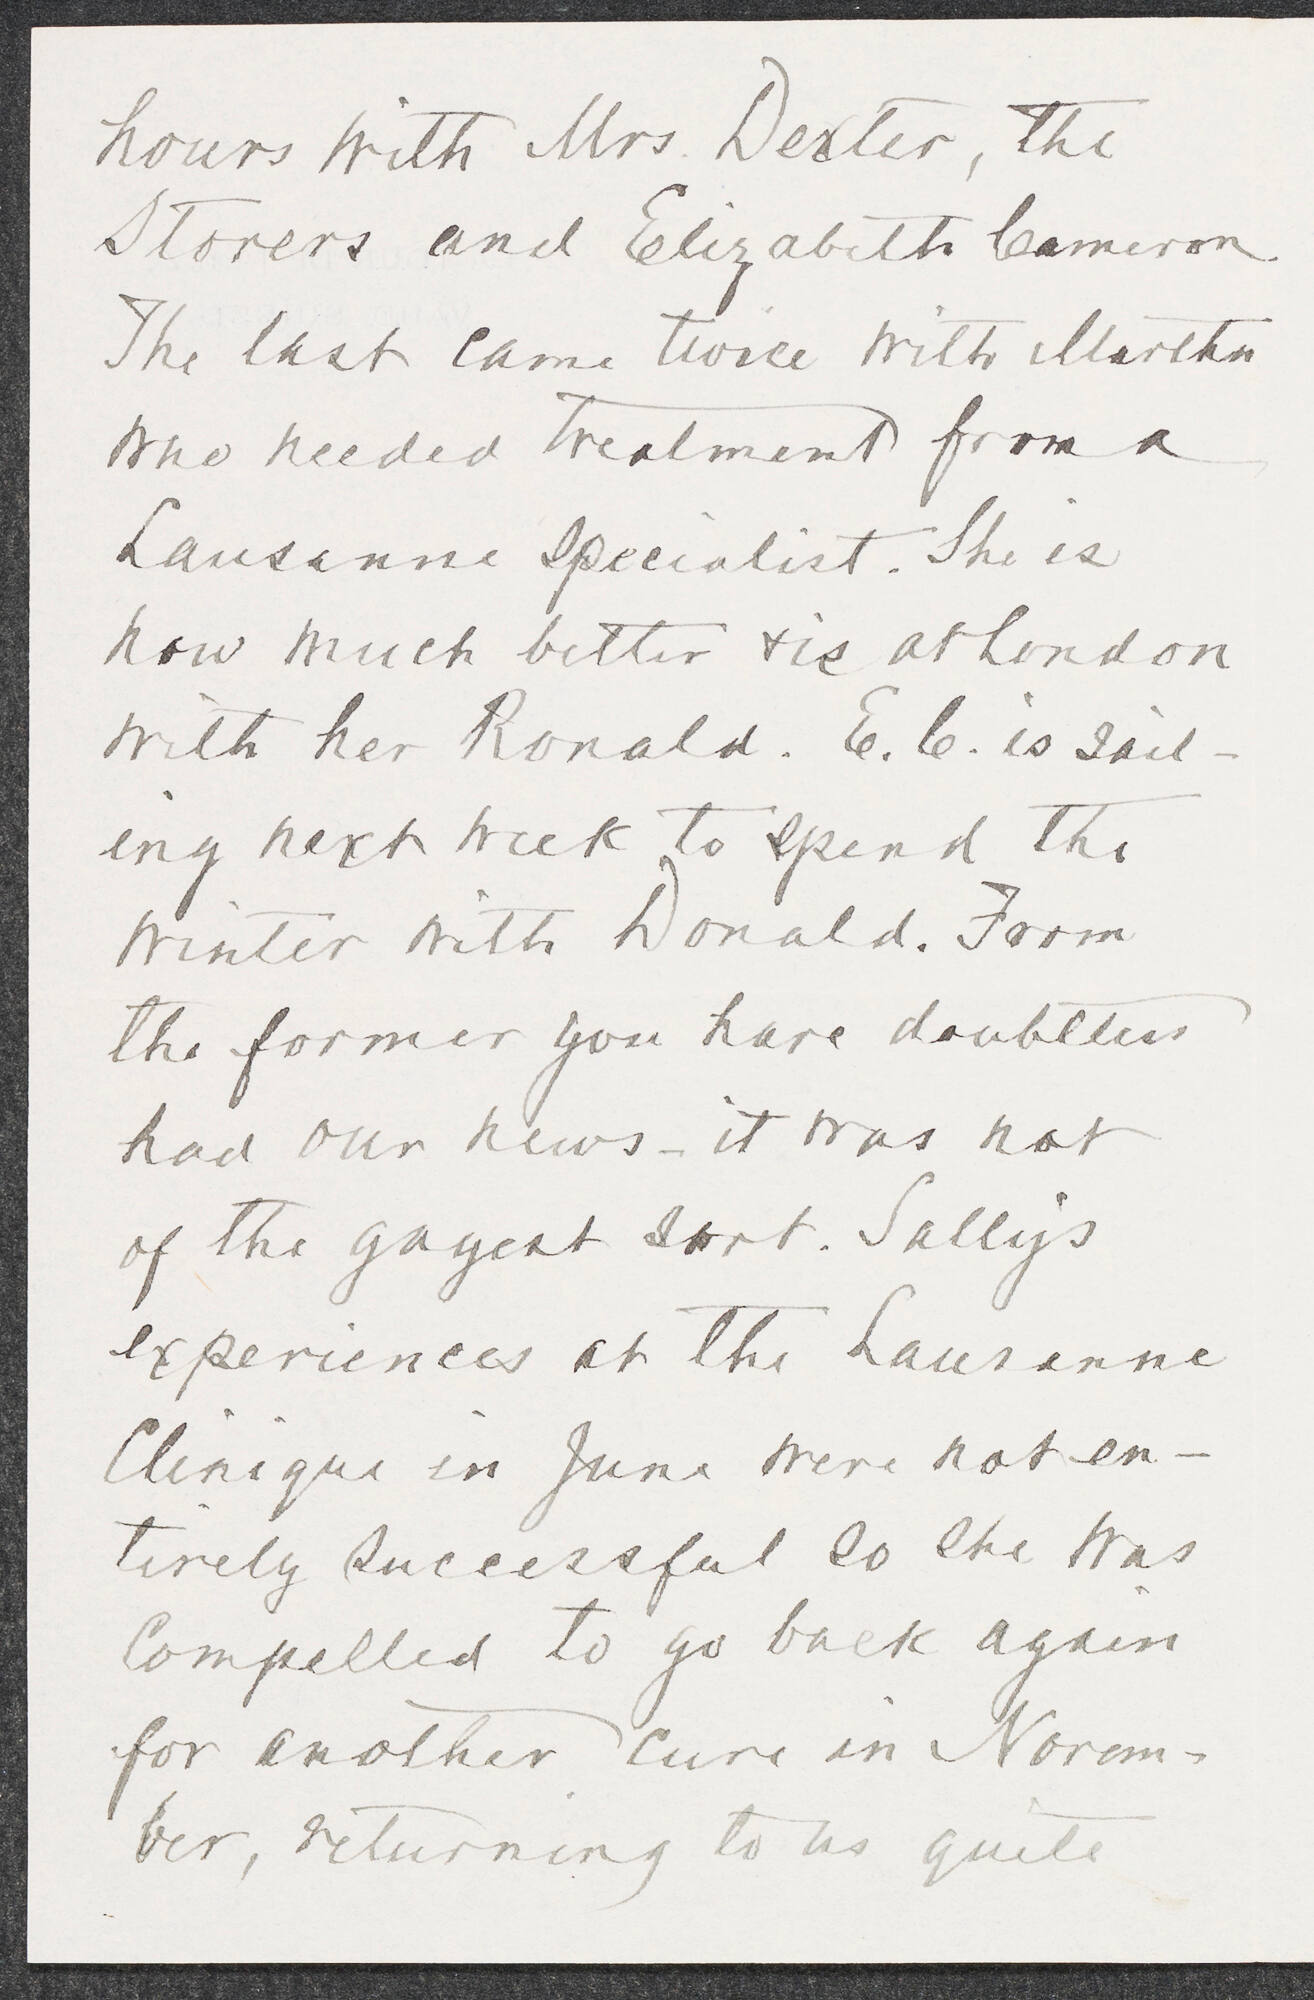 hours with Mrs. Dexter, the
Storers and Elizabeth Cameron.
The last came twice with Martha
who needed treatment from a
Lausanne specialist. She is
now much better & is at London
with her Ronald. E. C. is sail-
ing next week to spend the
winter with Donald. From
the former you have doubtless
had our news - it was not
of the gayest sort. Sally's
experiences at the Lausanne
Clinique in June were not en-
tirely successful so she was
compelled to go back again
for another cure in Novem-
ber, returning to us quite